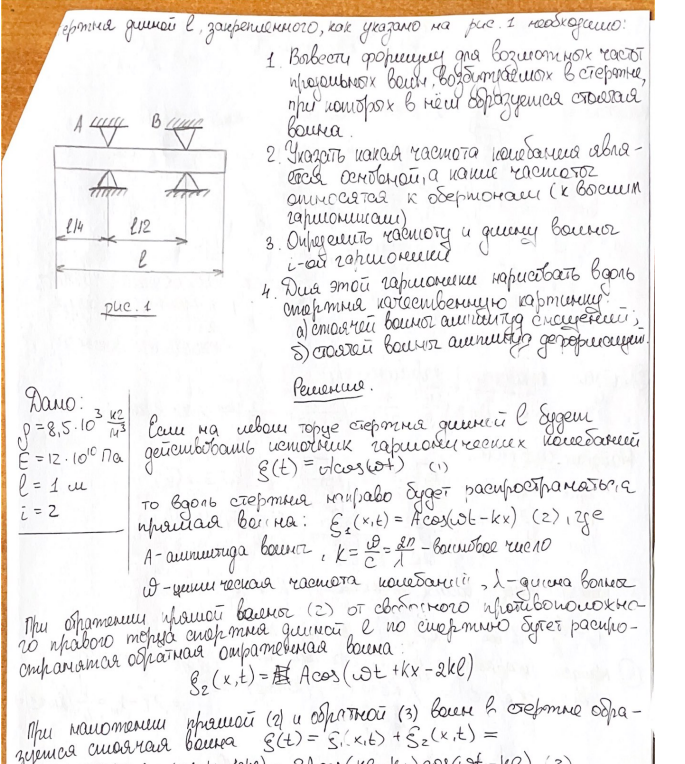 ержня длиной l, закрепленного, как указано на рис. 1 необходимо:
1. Вывести формулу для возможных частот
продольных волн, возбуждаемых в стержне,
при которых в нём образуется стоячая
волна.
2. Указать какая частота колебания явля-
ется основной, а какие частоты
относятся к обертонам (к высшим
гармоникам)
3. Определить частоту и длину волны
i-ой гармоники
4. Для этой гармоники нарисовать вдоль
стержня качественную картинку:
а) стоячей волны амплитуд смещений;
б) стоячей волны амплитуд деформаций.
A B
l/4 l/2
l
рис. 1
Решения.
Дано:
ρ = 8,5·10³ кг/м³
E = 12·10¹⁰ Па
l = 1 м
i = 2
Если на левом торце стержня длиной l будет
действовать источник гармонических колебаний
ξ(t) = Acos(ωt) (1)
то вдоль стержня направо будет распространяться
прямая волна: ξ₁(x,t) = Acos(ωt-kx) (2), где
A-амплитуда волны, k = ω/c = 2π/λ - волновое число
ω-циклическая частота колебаний, λ-длина волны
При отражении прямой волны (2) от свободного противоположно-
го правого торца стержня длиной l по стержню будет распро-
странятся обратная отраженная волна:
ξ₂(x,t) = Acos(ωt + kx - 2kl)
При наложении прямой (2) и обратной (3) волн в стержне обра-
зуется стоячая волна ξ(t) = ξ₁(x,t) + ξ₂(x,t) =